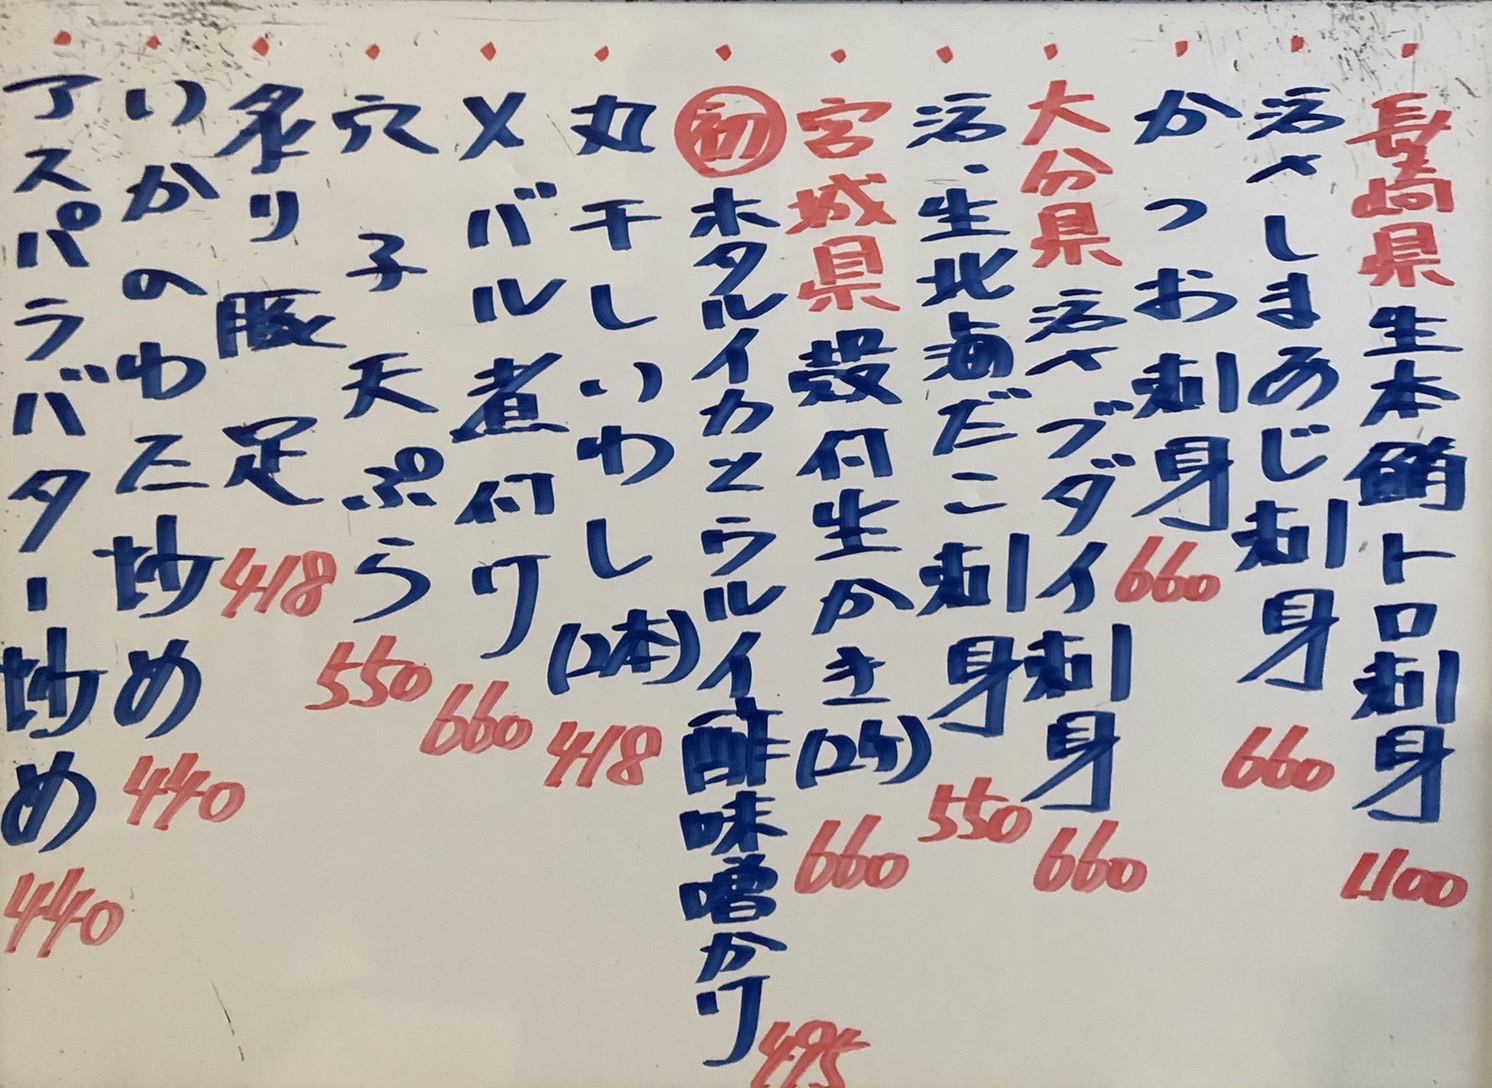 長崎県生本鮪トロ刺身 1100
活〆しまあじ刺身 660
かつお刺身 660
大分県活〆ブダイ刺身 660
活、生北海だこ刺身 550
宮城県殻付生かき(2ケ) 660
初ホタルイカとウルイ酢味噌かけ 495
丸干しいわし(2本) 418
メバル煮付け 660
穴子天ぷら 550
炙り豚足 418
いかのわた炒め 440
アスパラバター炒め 440